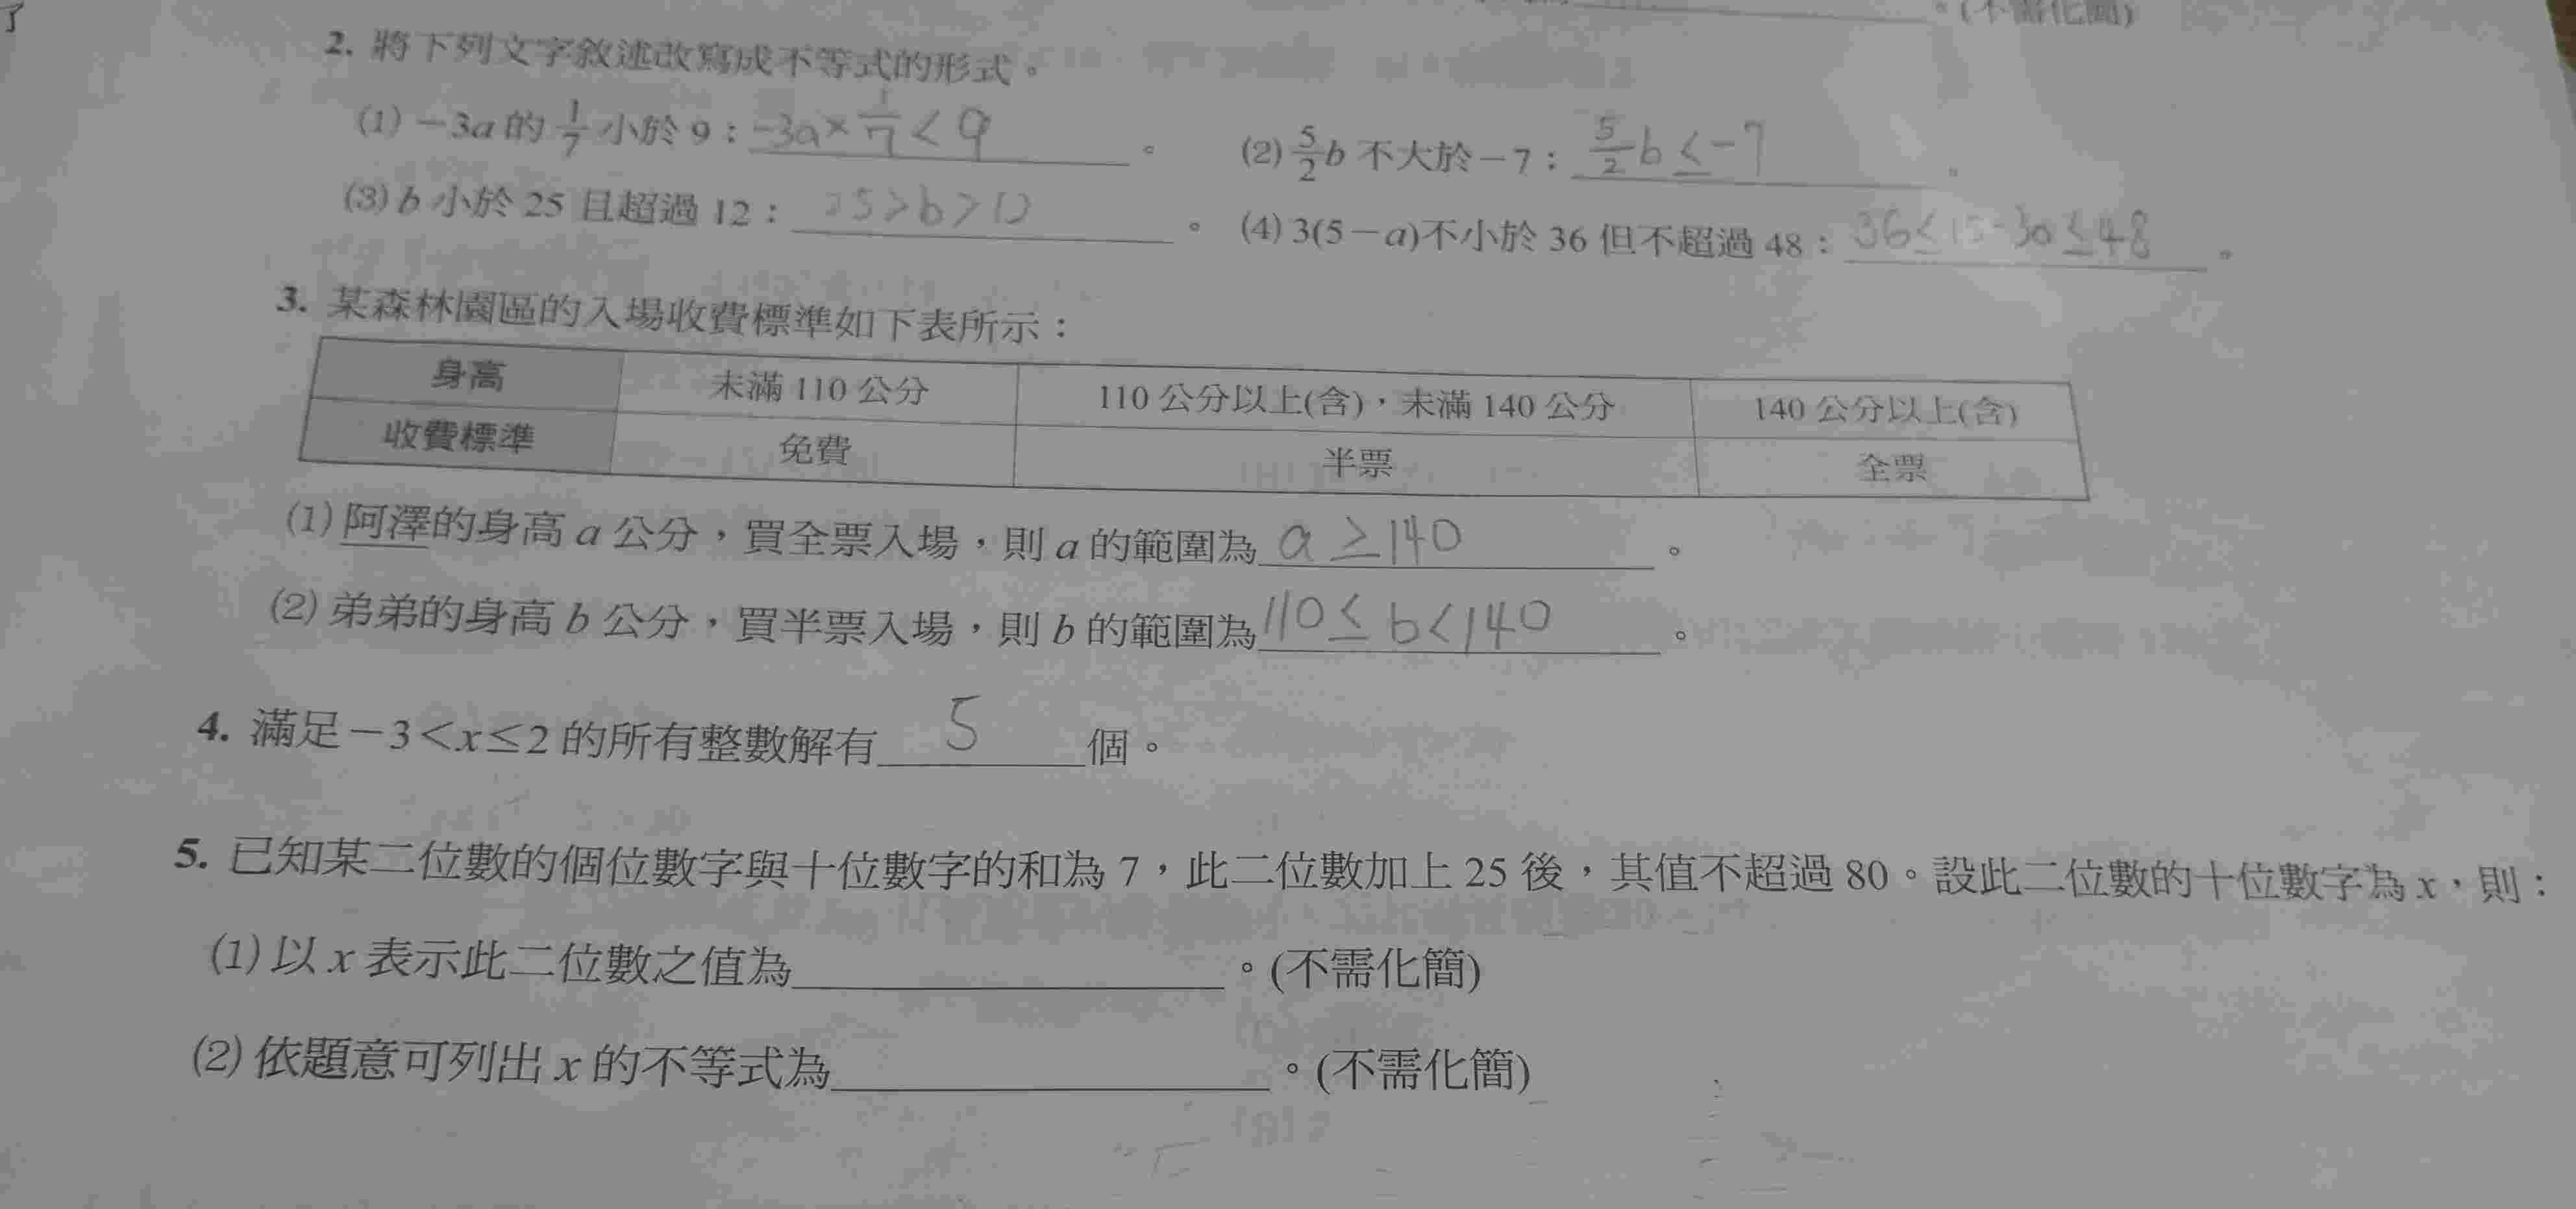 。(不需化簡)
2. 將下列文字敘述改寫成不等式的形式。
(1) －3a 的 1/7 小於 9：-3a×1/7<9。
(2) 5/2 b 不大於－7：5/2 b≤-7。
(3) b 小於 25 且超過 12：25>b>12。
(4) 3(5－a)不小於 36 但不超過 48：36≤15-3a≤48。
3. 某森林園區的入場收費標準如下表所示：
身高 未滿 110 公分 110 公分以上(含)，未滿 140 公分 140 公分以上(含)
收費標準 免費 半票 全票
(1) 阿澤的身高 a 公分，買全票入場，則 a 的範圍為a≥140。
(2) 弟弟的身高 b 公分，買半票入場，則 b 的範圍為110≤b<140。
4. 滿足－3＜x≤2 的所有整數解有5個。
5. 已知某二位數的個位數字與十位數字的和為 7，此二位數加上 25 後，其值不超過 80。設此二位數的十位數字為 x，則：
(1) 以 x 表示此二位數之值為。(不需化簡)
(2) 依題意可列出 x 的不等式為。(不需化簡)